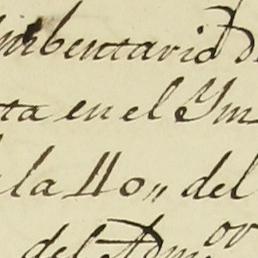 Imbentario d
ta en el Ym
la 110,, del
del Adm.or